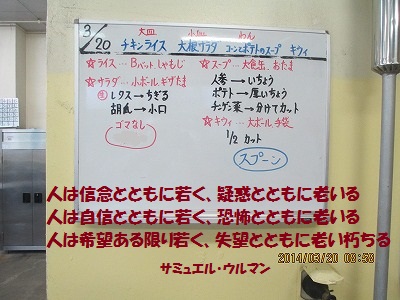 3/20
大皿 小皿 わん
チキンライス 大根サラダ コーンとポテトのスープ キウィ
☆ライス…Bバット、しゃもじ
☆サラダ…小ボール ギザたま
レタス→ちぎる
胡瓜→小口
ゴマなし
☆スープ…大食缶、おたま
人参→いちょう
ポテト→厚いちょう
チンゲン菜→分けてカット
☆キウィ…大ボール 手袋
1/2 カット
スプーン
人は信念とともに若く、疑惑とともに老いる
人は自信とともに若く、恐怖とともに老いる
人は希望ある限り若く、失望とともに老い朽ちる
サミュエル・ウルマン
2014/03/20 08:58